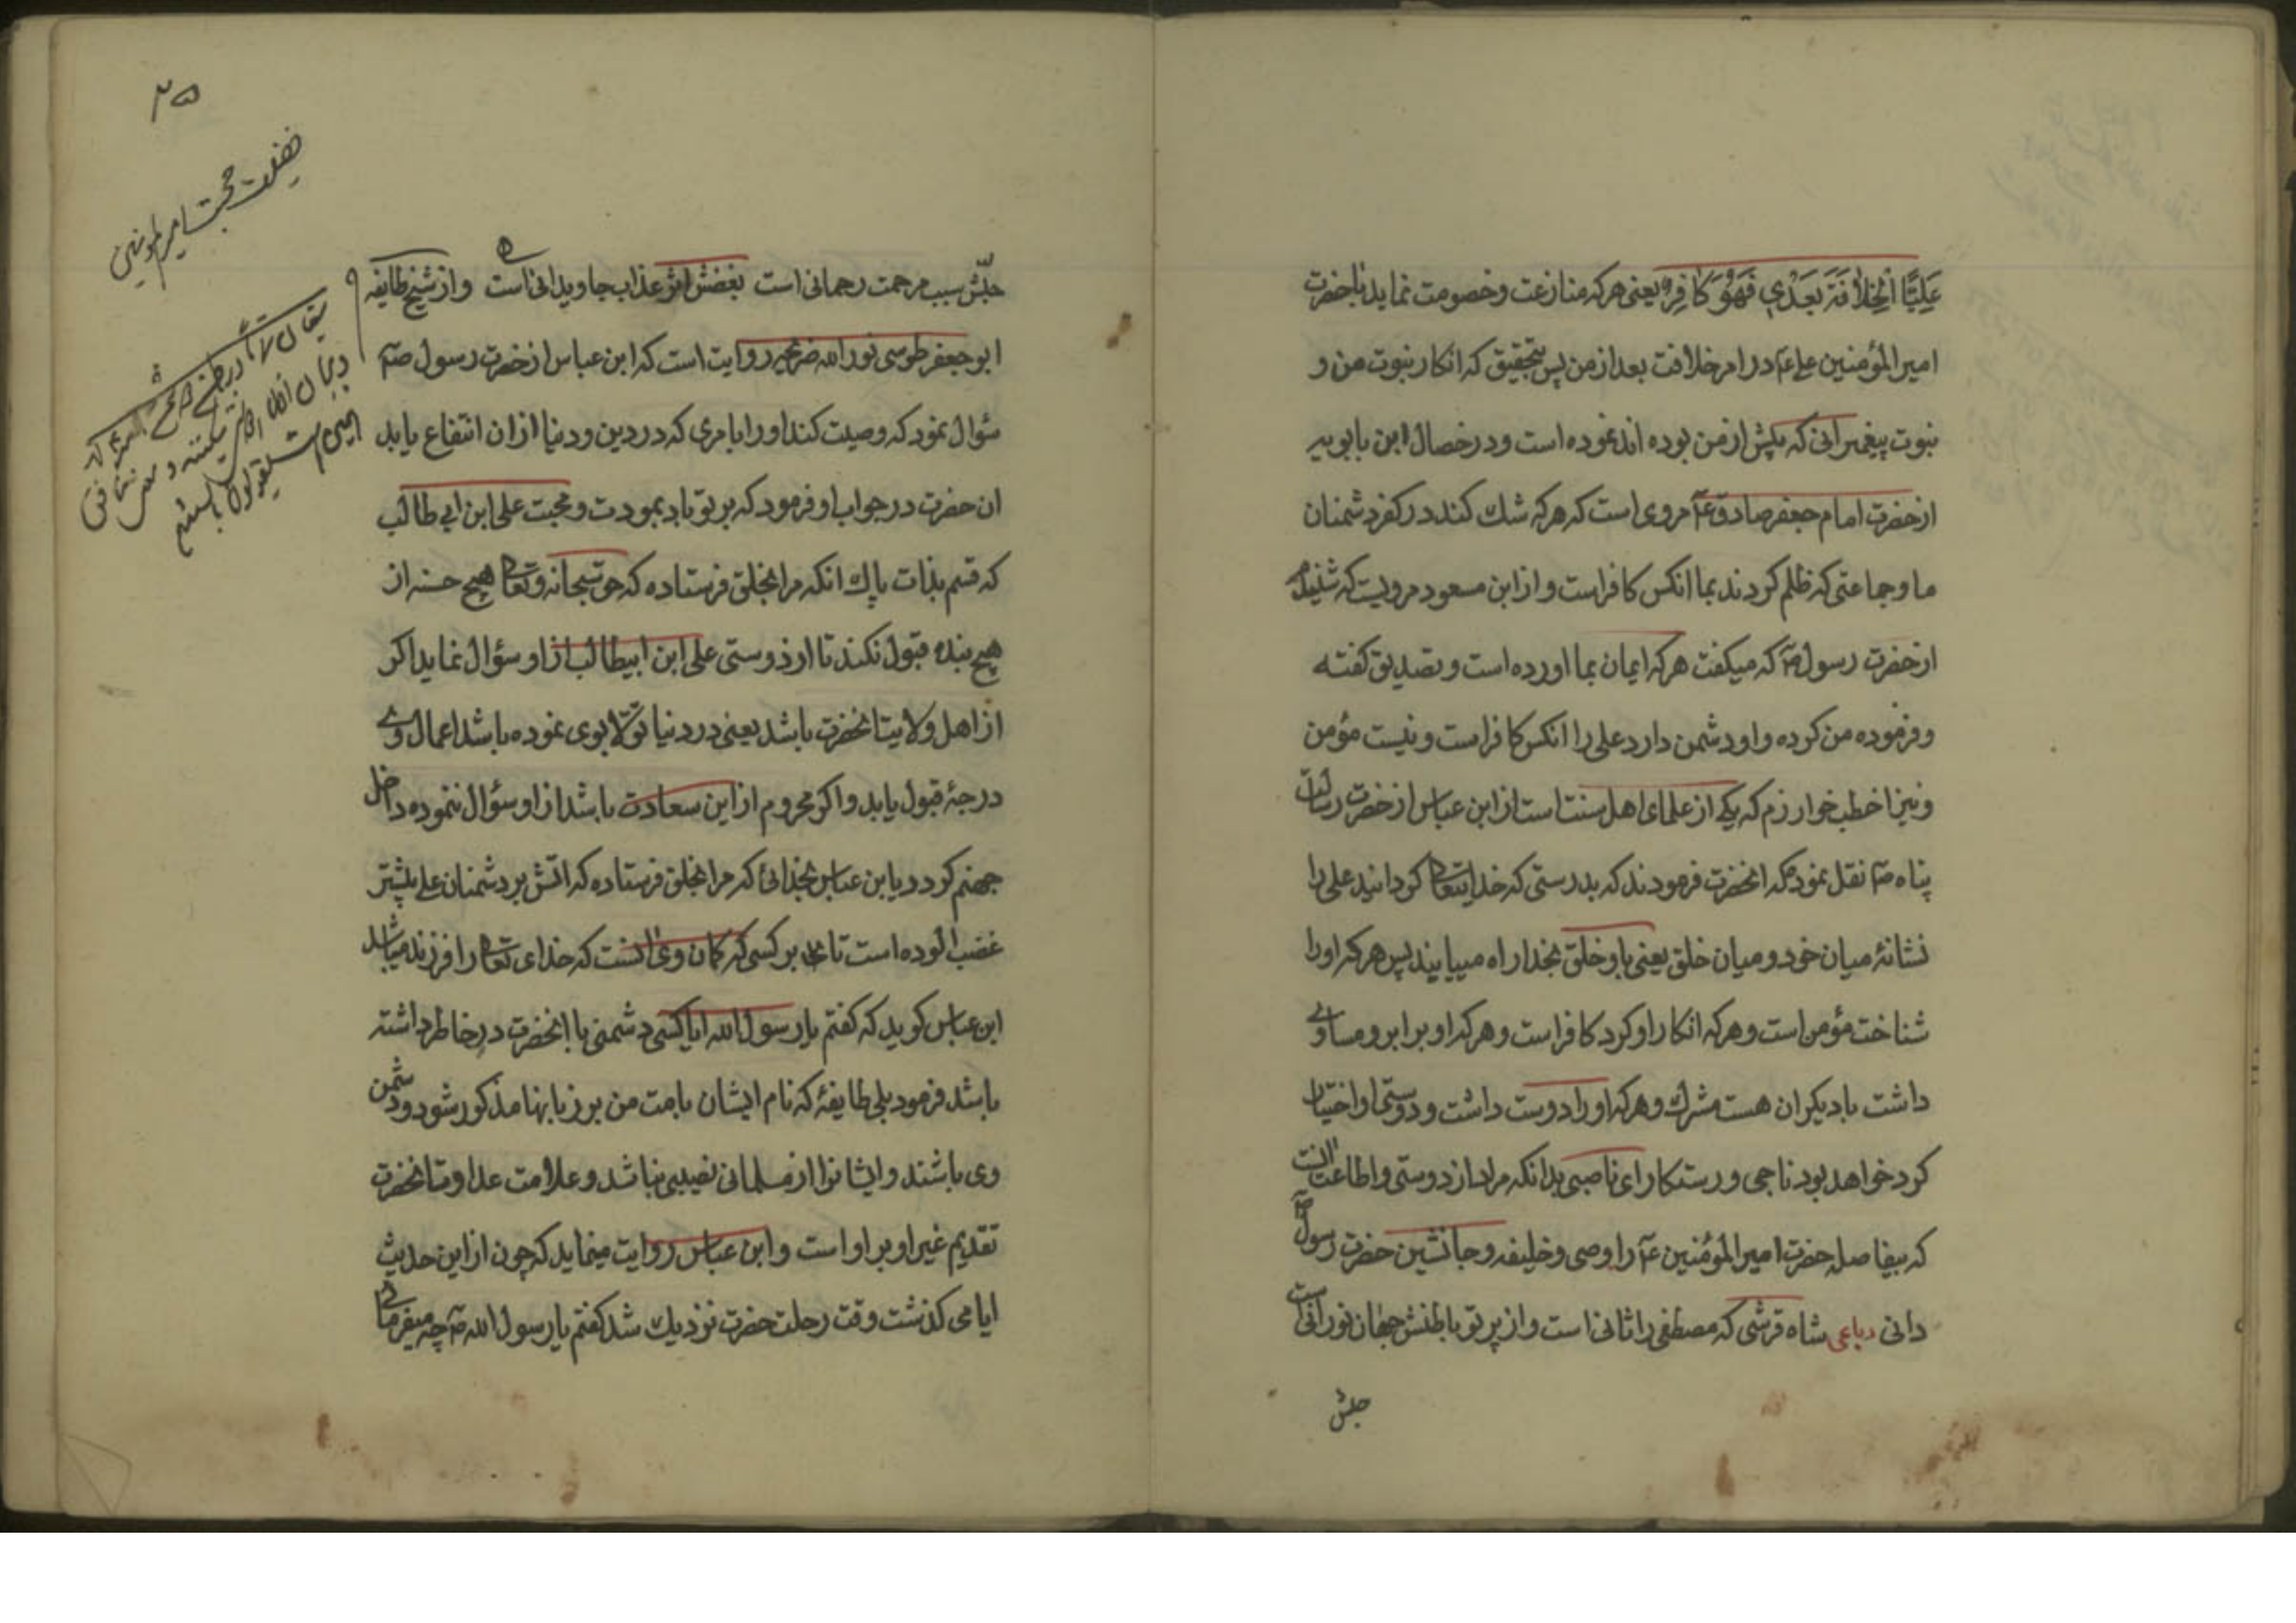 عَلِیًّا الْخِلَافَةَ بَعْدِي فَهُوَ کَافِرٌ یعنی هرکه منازعت وخصومت نماید باحضرت
امیرالمؤمنین علی ع در امر خلافت بعد از من پس بتحقیق که انکار نبوت من و
نبوت پیغمبرانی که پیش از من بوده اند نموده است ودر خصال ابن بابویه
از حضرت امام جعفر صادق ع مروی است که هرکه شك کند در کفر دشمنان
ما وجماعتی که ظلم کردند بما انکس کافر است واز ابن مسعود مرویست که شنیدم
از حضرت رسول ص که میکفت هرکه ایمان بما اورده است وتصدیق کفته
وفرموده من کرده واو دشمن دارد علی را انکس کافر است ونیست مؤمن
ونیز اخطب خوارزم که یکی از علمای اهل سنت است از ابن عباس از حضرت رسالت
پناه ص نقل نموده که انحضرت فرمودند که بدرستی که خدایتعالی کردانید علی را
نشانهٔ میان خود ومیان خلق یعنی باو خلق بخدا راه مییابند پس هرکه اورا
شناخت مؤمن است وهرکه انکار او کرد کافر است وهرکه او برابر ومساوی
داشت با دیکران هست مشرك وهرکه اورا دوست داشت ودوستی او اختیار
کرد خواهد بود ناجی ورستکار ای ناصبی بدانکه مراد از دوستی واطاعت انست
که بیفاصله حضرت امیرالمؤمنین ع را وصی وخلیفه وجانشین حضرت رسول ص
دانی رباعی شاه قرشی که مصطفی را ثانی است واز پرتو باطنش جهان نورانی است
حبش
۲۵
فضیلت محبت امیرالمؤمنین
حبّش سبب مرحمت رحمانی است بغضش اثر عذاب جاویدانی است واز شیخ طایفه
ابو جعفر طوسی نور الله ضریحه روایت است که ابن عباس از حضرت رسول ص
سؤال نمود که وصیت کند اورا بامری که در دین ودنیا از ان انتفاع یابد
ان حضرت در جواب او فرمود که بر تو باد بمودت ومحبت علی ابن ابی طالب
که قسم بذات پاك انکه مرا بخلق فرستاده که حق سبحانه وتعالی هیچ حسنه از
هیچ بنده قبول نکند تا از دوستی علی ابن ابیطالب از او سؤال نماید اکر
از اهل ولایت انحضرت باشد یعنی در دنیا تولّا بوی نموده باشد اعمال وی
درجهٔ قبول یابد واکر محروم از این سعادت باشد از او سؤال ننموده داخل
جهنم کردد یا ابن عباس بخدائی که مرا بخلق فرستاده که اتش بر دشمنان علی بیشتر
غضب الوده است تا بر کسی که کمان وی انست که خدای تعالی را فرزند میباشد
ابن عباس کوید که کفتم یا رسول الله ایا کسی دشمنی با انحضرت در خاطر داشته
باشد فرمود بلی طایفهٔ که نام ایشان بامت من بر زبانها مذکور شود ودشمن
وی باشند وایشانرا از مسلمانی نصیبی نباشد وعلامت عداوت انحضرت
تقدیم غیر او بر او است وابن عباس روایت مینماید که چون از این حدیث
ایامی کذشت وقت رحلت حضرت نزدیك شد کفتم یا رسول الله ص چه میفرمائی